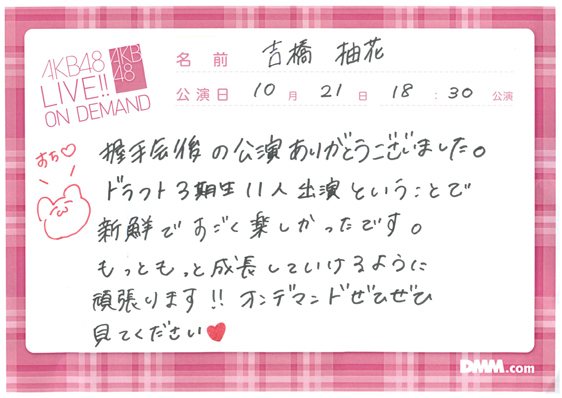 AKB48
LIVE!!
ON DEMAND
AKB
48
名前 吉橋 柚花
公演日 10月 21日 18:30 公演
おち♡
握手会後の公演ありがとうございました。
ドラフト3期生11人出演ということで
新鮮ですごく楽しかったです。
もっともっと成長していけるように
頑張ります!! オンデマンドぜひぜひ
見てください♥
DMM.com